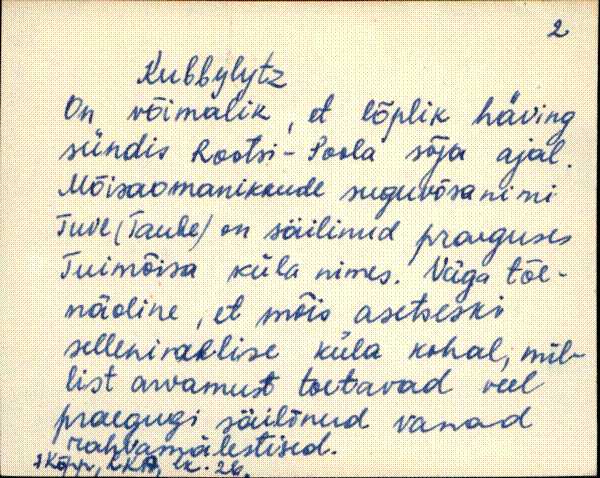 2
Kubbylytz
On võimalik, et lõplik häving
sündis Rootsi-Poola sõja ajal.
Mõisaomanikkude suguvõsa nimi
Tuve (Taube) on säilinud praeguses
Tuimõisa küla nimes. Väga tõe-
näoline, et mõis asetseski
sellenimelise küla kohal, mil-
list arvamust toetavad veel
praegugi säilinud vanad
rahvamälestised.
Kõpp, LKA, lk. 26.